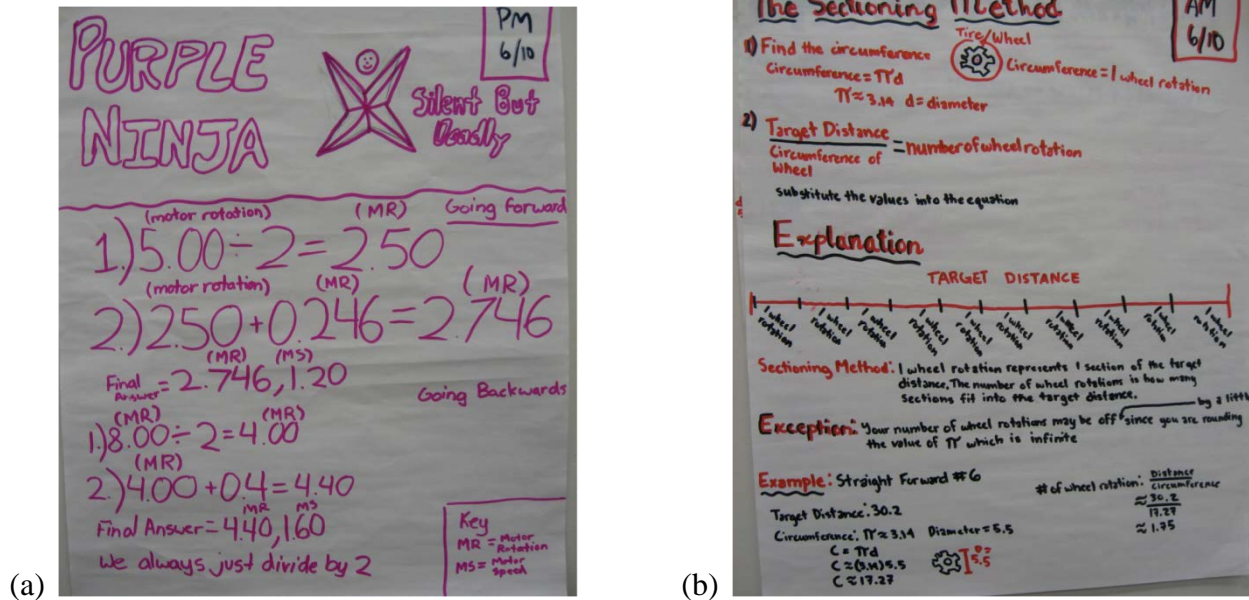 PURPLE
NINJA
Silent But
Deadly
PM
6/10
Going forward
(motor rotation) (MR)
1.) 5.00 ÷ 2 = 2.50
(motor rotation) (MR) (MR)
2.) 2.50 + 0.246 = 2.746
(MR) (MS)
Final Answer = 2.746, 1.20
Going Backwards
(MR) (MR)
1.) 8.00 ÷ 2 = 4.00
(MR)
2.) 4.00 + 0.4 = 4.40
MR MS
Final Answer = 4.40, 1.60
We always just divide by 2
Key
MR = Motor
Rotation
MS = Motor
Speed
(a)
The Sectioning Method
AM
6/10
1) Find the circumference
Circumference = πd
π ≈ 3.14 d = diameter
Tire/Wheel
Circumference = 1 wheel rotation
2) Target Distance
Circumference of
Wheel
= number of wheel rotation
substitute the values into the equation
Explanation
TARGET DISTANCE
1 wheel rotation
1 wheel rotation
1 wheel rotation
1 wheel rotation
1 wheel rotation
1 wheel rotation
1 wheel rotation
1 wheel rotation
1 wheel rotation
1 wheel rotation
Sectioning Method: 1 wheel rotation represents 1 section of the target
distance. The number of wheel rotations is how many
sections fit into the target distance.
Exception: Your number of wheel rotations may be off by a little since you are rounding
the value of π which is infinite
Example: Straight Forward #6
Target Distance: 30.2
Circumference: π ≈ 3.14 Diameter = 5.5
C = πd
C ≈ (3.14) 5.5
C ≈ 17.27
D =
5.5
# of wheel rotation: Distance
Circumference
≈ 30.2
17.27
≈ 1.75
(b)